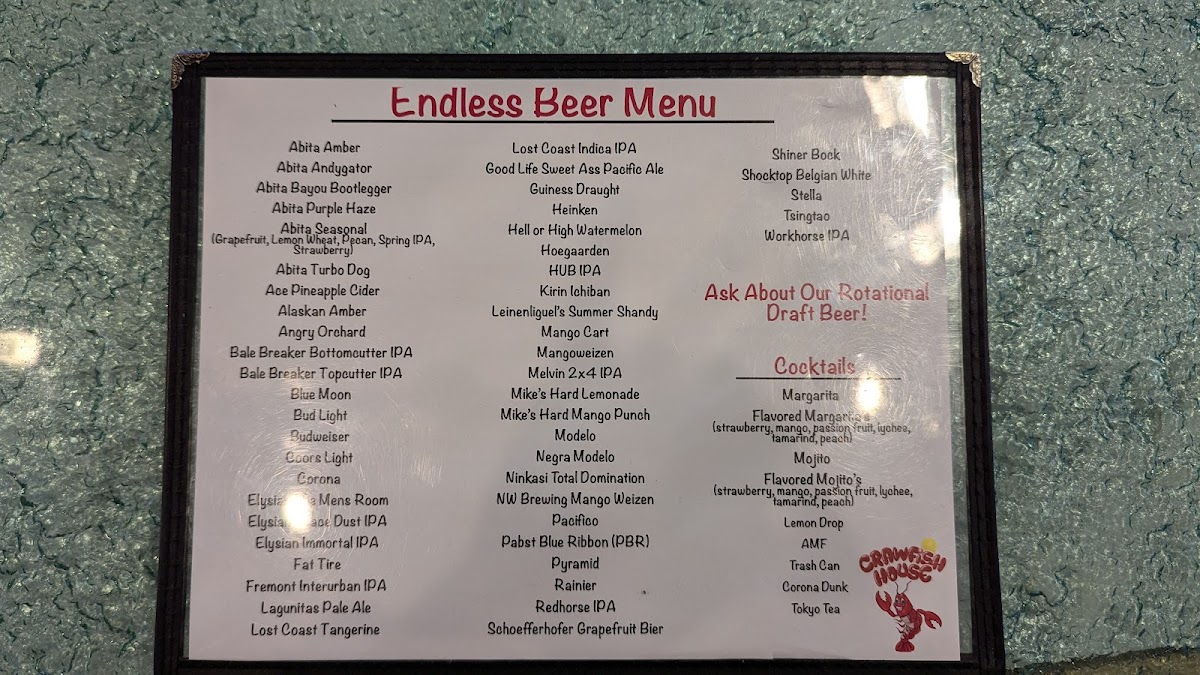 Endless Beer Menu
Abita Amber
Abita Andygator
Abita Bayou Bootlegger
Abita Purple Haze
Abita Seasonal
(Grapefruit, Lemon Wheat, Pecan, Spring IPA,
Strawberry)
Abita Turbo Dog
Ace Pineapple Cider
Alaskan Amber
Angry Orchard
Bale Breaker Bottomcutter IPA
Bale Breaker Topcutter IPA
Blue Moon
Bud Light
Budweiser
Coors Light
Corona
Elysian Mens Room
Elysian Dust IPA
Elysian Immortal IPA
Fat Tire
Fremont Interurban IPA
Lagunitas Pale Ale
Lost Coast Tangerine
Lost Coast Indica IPA
Good Life Sweet Ass Pacific Ale
Guiness Draught
Heinken
Hell or High Watermelon
Hoegaarden
HUB IPA
Kirin Ichiban
Leinenliguel's Summer Shandy
Mango Cart
Mangoweizen
Melvin 2x4 IPA
Mike's Hard Lemonade
Mike's Hard Mango Punch
Modelo
Negra Modelo
Ninkasi Total Domination
NW Brewing Mango Weizen
Pacifico
Pabst Blue Ribbon (PBR)
Pyramid
Rainier
Redhorse IPA
Schoefferhofer Grapefruit Bier
Shiner Bock
Shocktop Belgian White
Stella
Tsingtao
Workhorse IPA
Ask About Our Rotational
Draft Beer!
Cocktails
Margarita
Flavored Margarita's
(strawberry, mango, passion fruit, lychee,
tamarind, peach)
Mojito
Flavored Mojito's
(strawberry, mango, passion fruit, lychee,
tamarind, peach)
Lemon Drop
AMF
Trash Can
Corona Dunk
Tokyo Tea
CRAWFISH
HOUSE